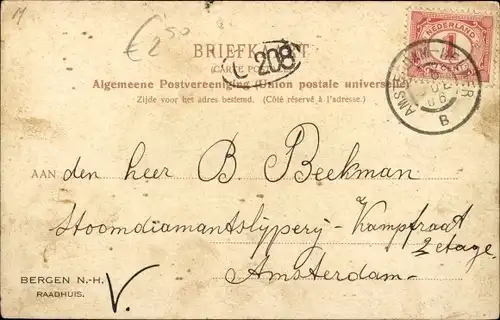 € 2 50
BRIEFKAART
(CARTE POSTALE)
208
NEDERLAND
1
Algemeene Postvereeniging (Union postale universelle)
Zijde voor het adres bestemd. (Côté réservé à l'adresse.)
B
AAN den heer B. Beekman
Stoomdiamantslijperij-Kampfraat
2 etage,
Amsterdam-
BERGEN N.-H.
RAADHUIS.
V.